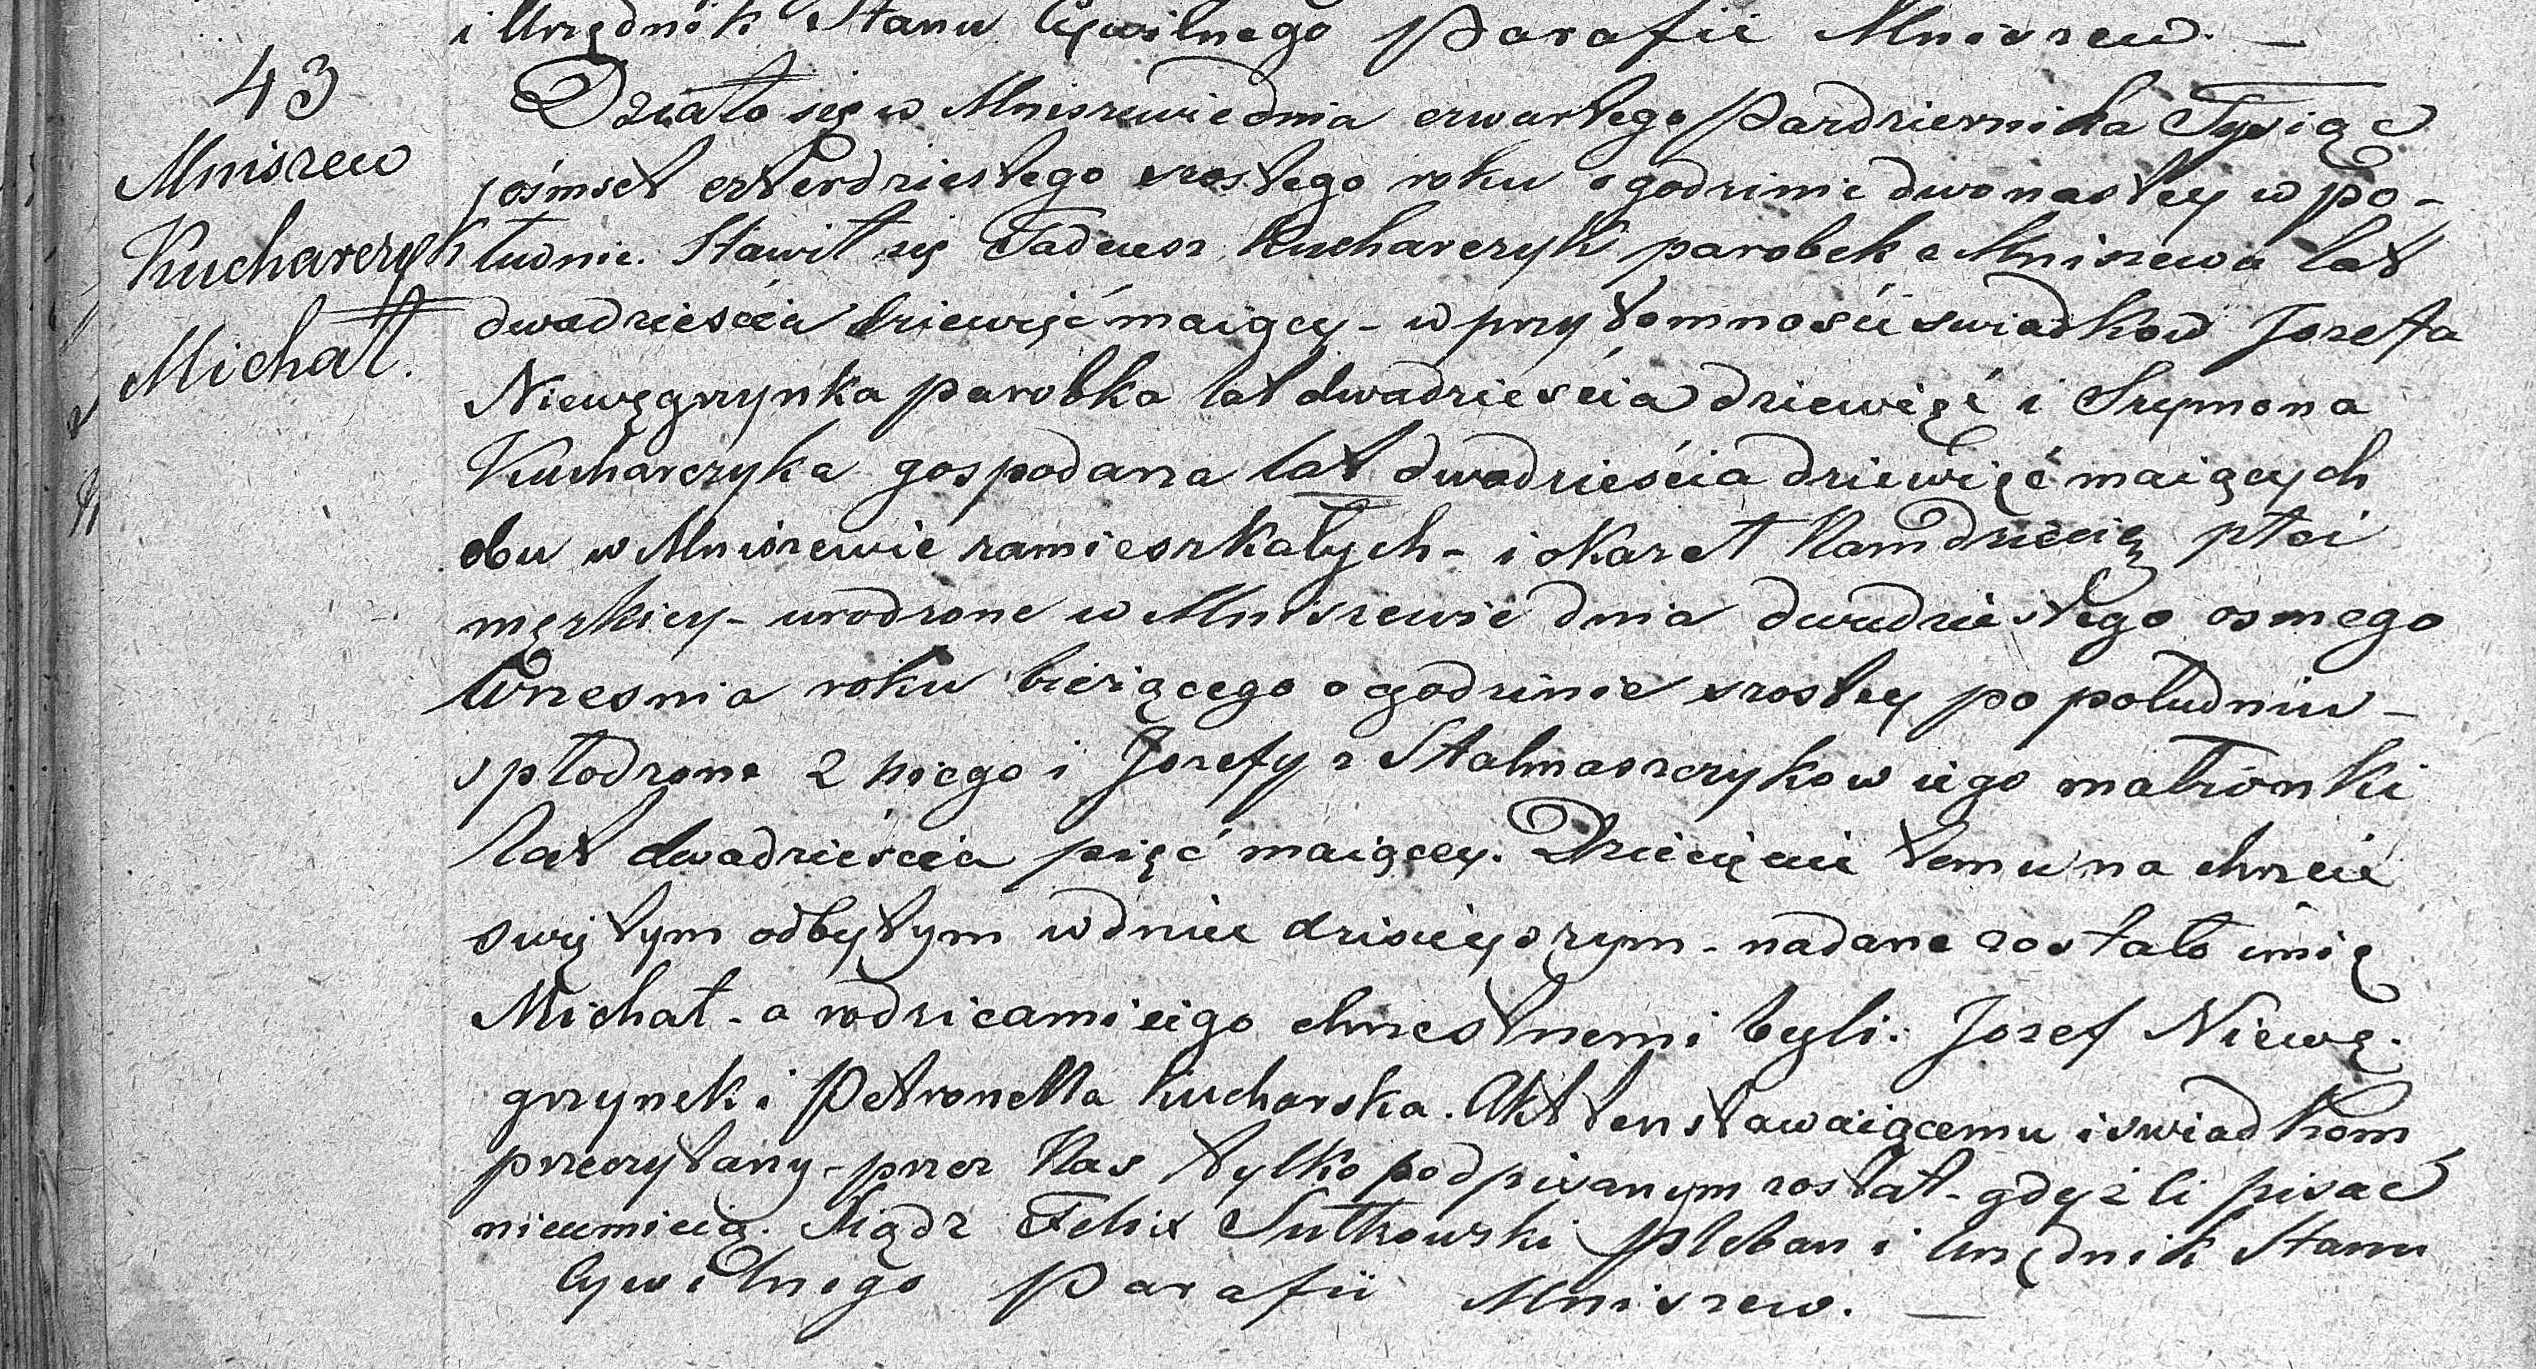 i Urzędnik Stanu Cywilnego Parafii Mniszew. —
43
Mniszew
Kucharczyk
Michał.
Działo się w Mniszewie dnia czwartego Pazdziernika Tysiąc
ośmset czterdziestego szostego roku o godzinie dwonastey w po-
łudnie. Stawił się Tadeusz Kucharczyk parobek z Mniszewa lat
dwadzieścia dziewięć maiący - w przytomności swiadkow Jozefa
Niewęgrzynka parobka lat dwadzieścia dziewięć i Szymona
Kucharczyka gospodarza lat dwadzieścia dziewięć maiących
obu w Mniszewie zamieszkałych - i okazał Nam dziecię płci
męzkiey - urodzone w Mniszewie dnia dwudziestego osmego
Wrzesnia roku bieżącego o godzinie szostey po południu -
spłodzone z niego i Jozefy z Stalmaszczykow iego małżonki
lat dwadzieścia pięć maiącey. Dziecięciu temu na chrzcie
swiętym odbytym w dniu dzisieyszym - nadane zostało imię
Michał - a rodzicami iego chrzestnemi byli. Jozef Niewę-
grzynek i Petronella Kucharska. Akt ten stawaiącemu i swiadkom
przeczytany - przez Nas tylko podpisanym został - gdyż ci pisać
nieumieią. Xiądz Felix Sułkowski pleban i Urzędnik Stanu
Cywilnego Parafii Mniszew. —